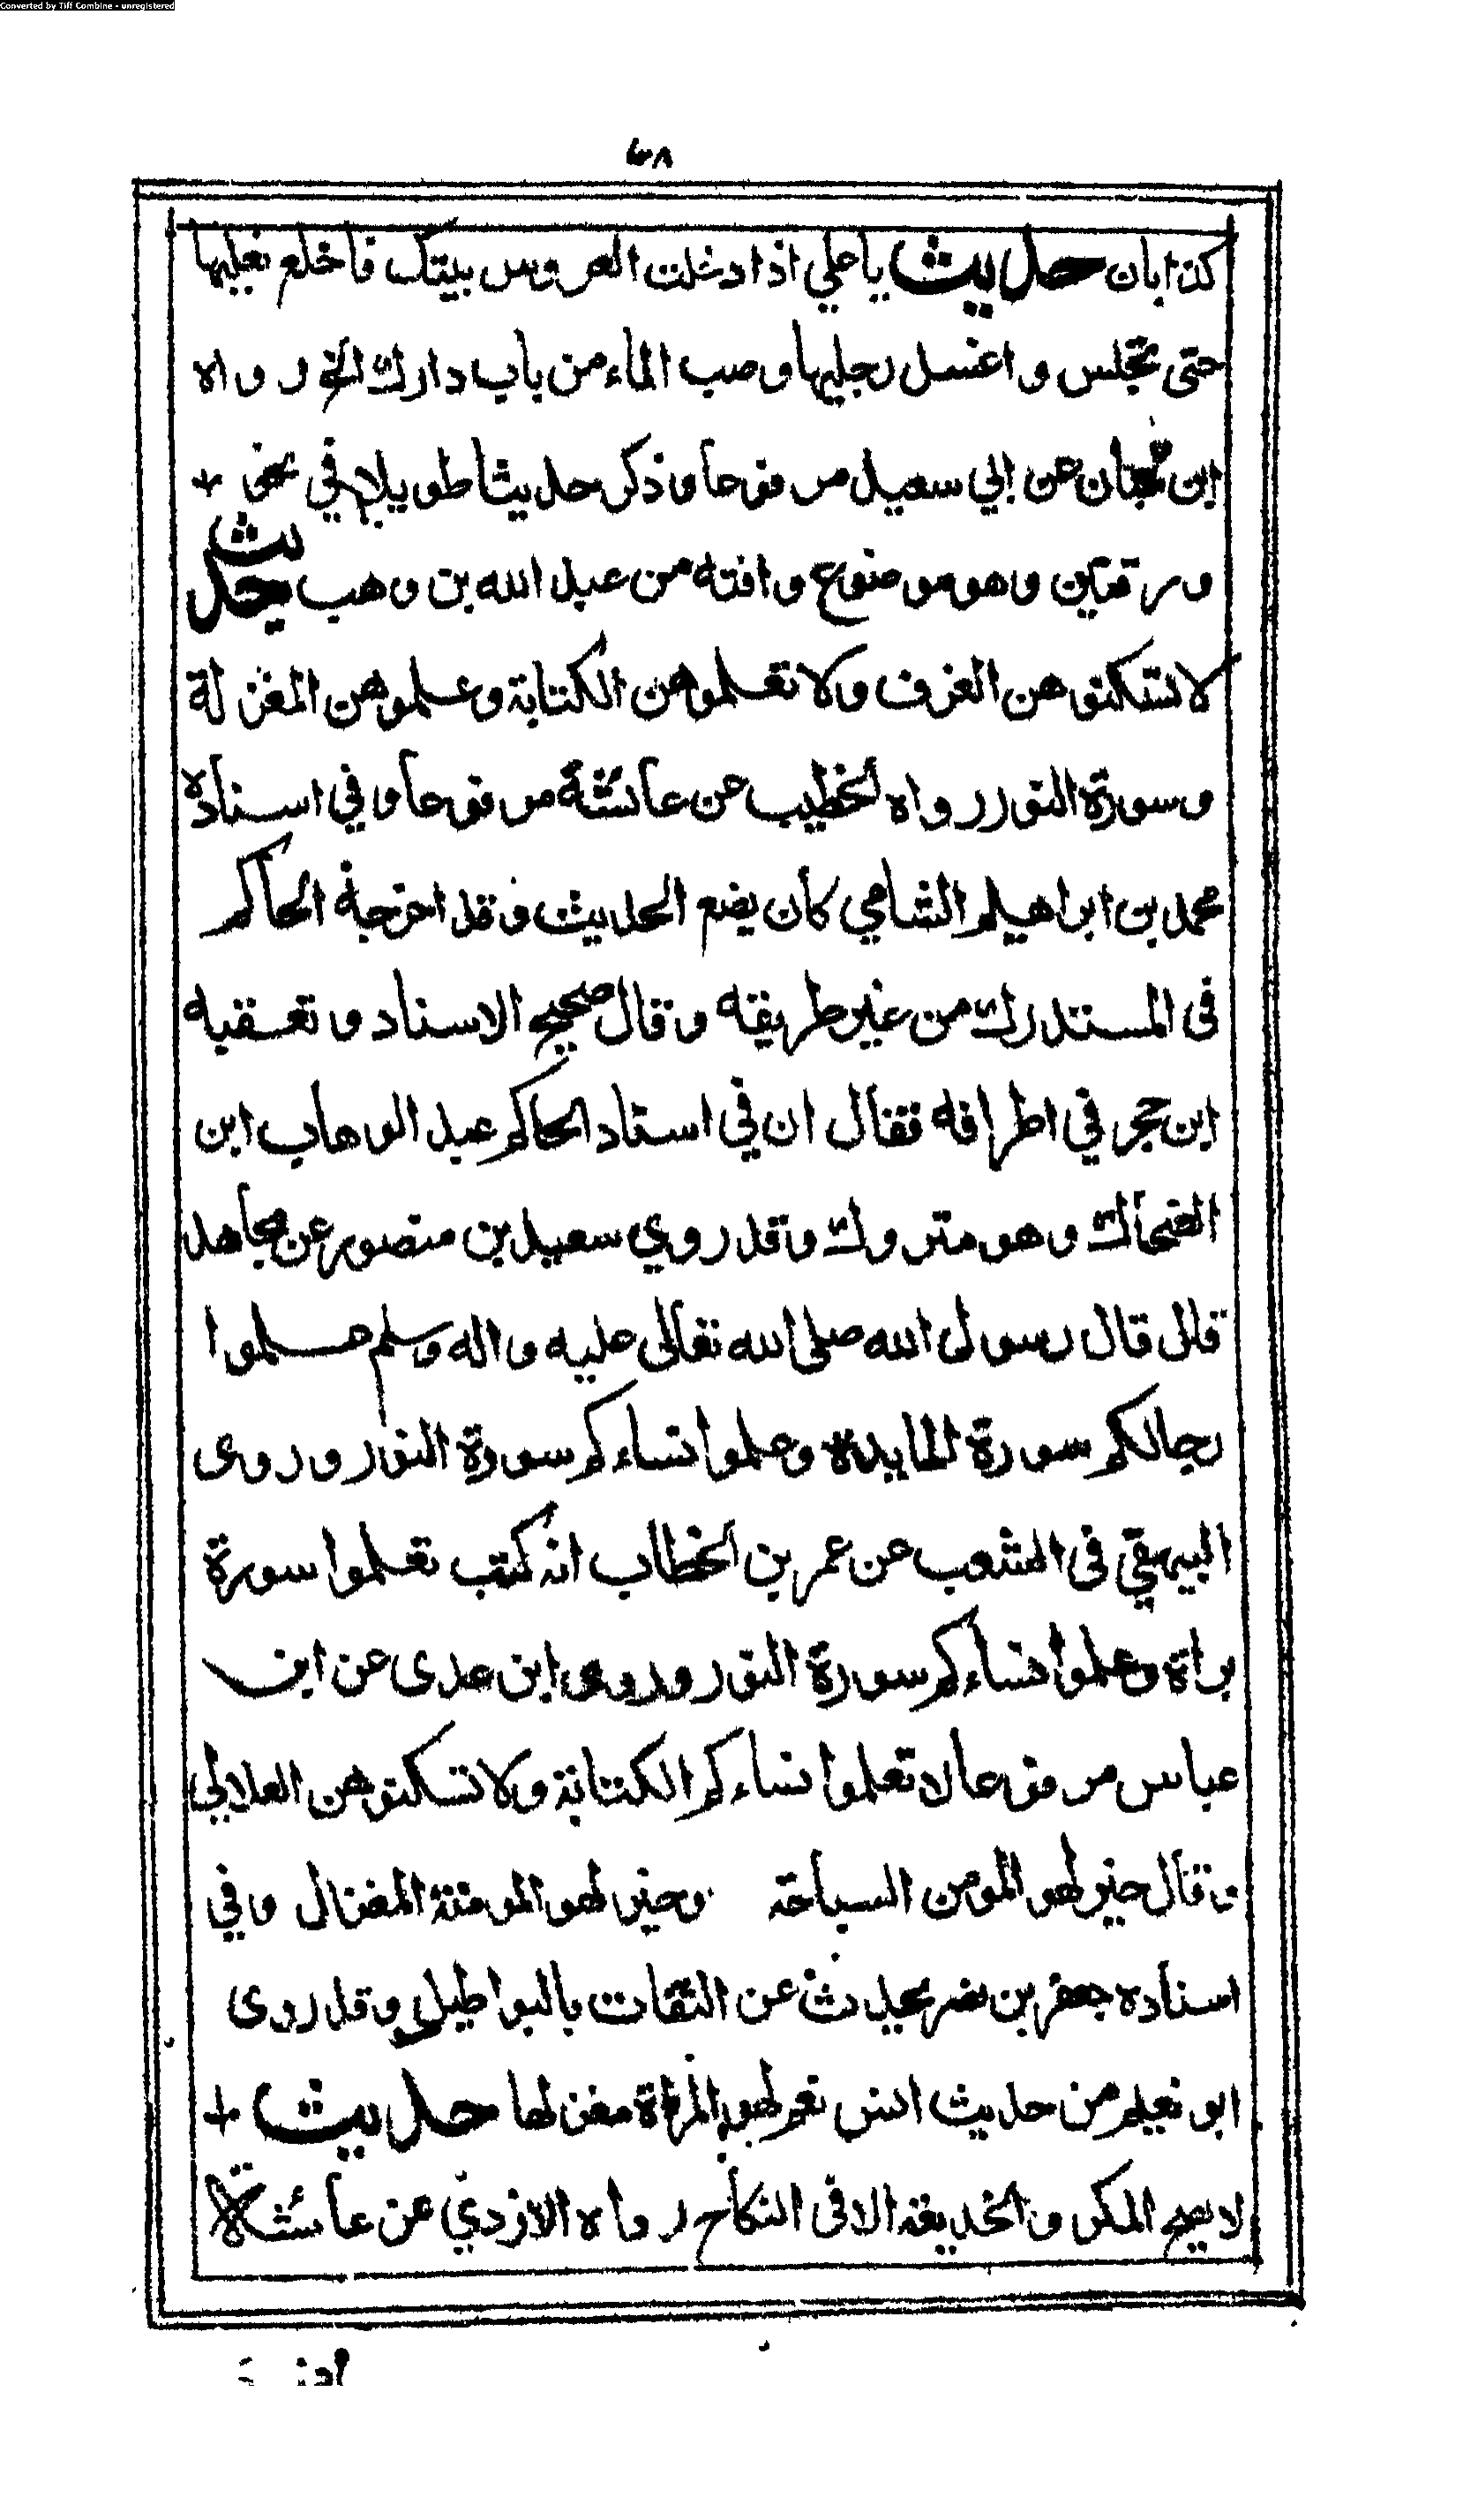 Converted by Tiff Combine - unregistered
٦٨
كذابان حديث يا علي اذا دخلت العروس بيتك فاخلع نعليها
حتى تجلس واغسل رجليها وصب الماء من باب دارك الخ رواه
ابن حبان عن ابي سعيد مرفوعا وذكر حديثا طويلا في نحو +
ورقتين وهو موضوع وافته من عبد الله بن وهب حديث
لا تسكنوهن الغرف ولا تعلموهن الكتابة وعلموهن المغزلة
وسورة النور رواه الخطيب عن عائشة مرفوعا وفي اسناده
محمد بن ابراهيم الشامي كان يضع الحديث وقد اخرجه الحاكم
فى المستدرك من غير طريقه وقال صحيح الاسناد وتعقبه
ابن حجر في اطرافه فقال ان في اسناد الحاكم عبد الوهاب ابن
الضحاك وهو متروك وقد روي سعيد بن منصور عن مجاهد
قال قال رسول الله صلى الله تعالى عليه واله وسلم علموا
رجالكم سورة المايدة وعلموا نساءكم سورة النور وروى
البيهقي فى الشعب عن عمر بن الخطاب انه كتب تعلموا سورة
براة وعلموا نساءكم سورة النور وروى ابن عدى عن ابن
عباس مرفوعا لا تعلموا نساءكم الكتابة ولا تسكنوهن العلالي
وقال خير لهو المومن السباحة وخير لهو المومنة المغزال وفي
اسناده جعفر بن نصر يحدث عن الثقات بالبواطيل وقد روى
ابو نعيم من حديث انس نعم لهو المرأة مغزلها حديث +
لا يصح المكر والخديعة الا فى النكاح رواه الازدي عن عائشة